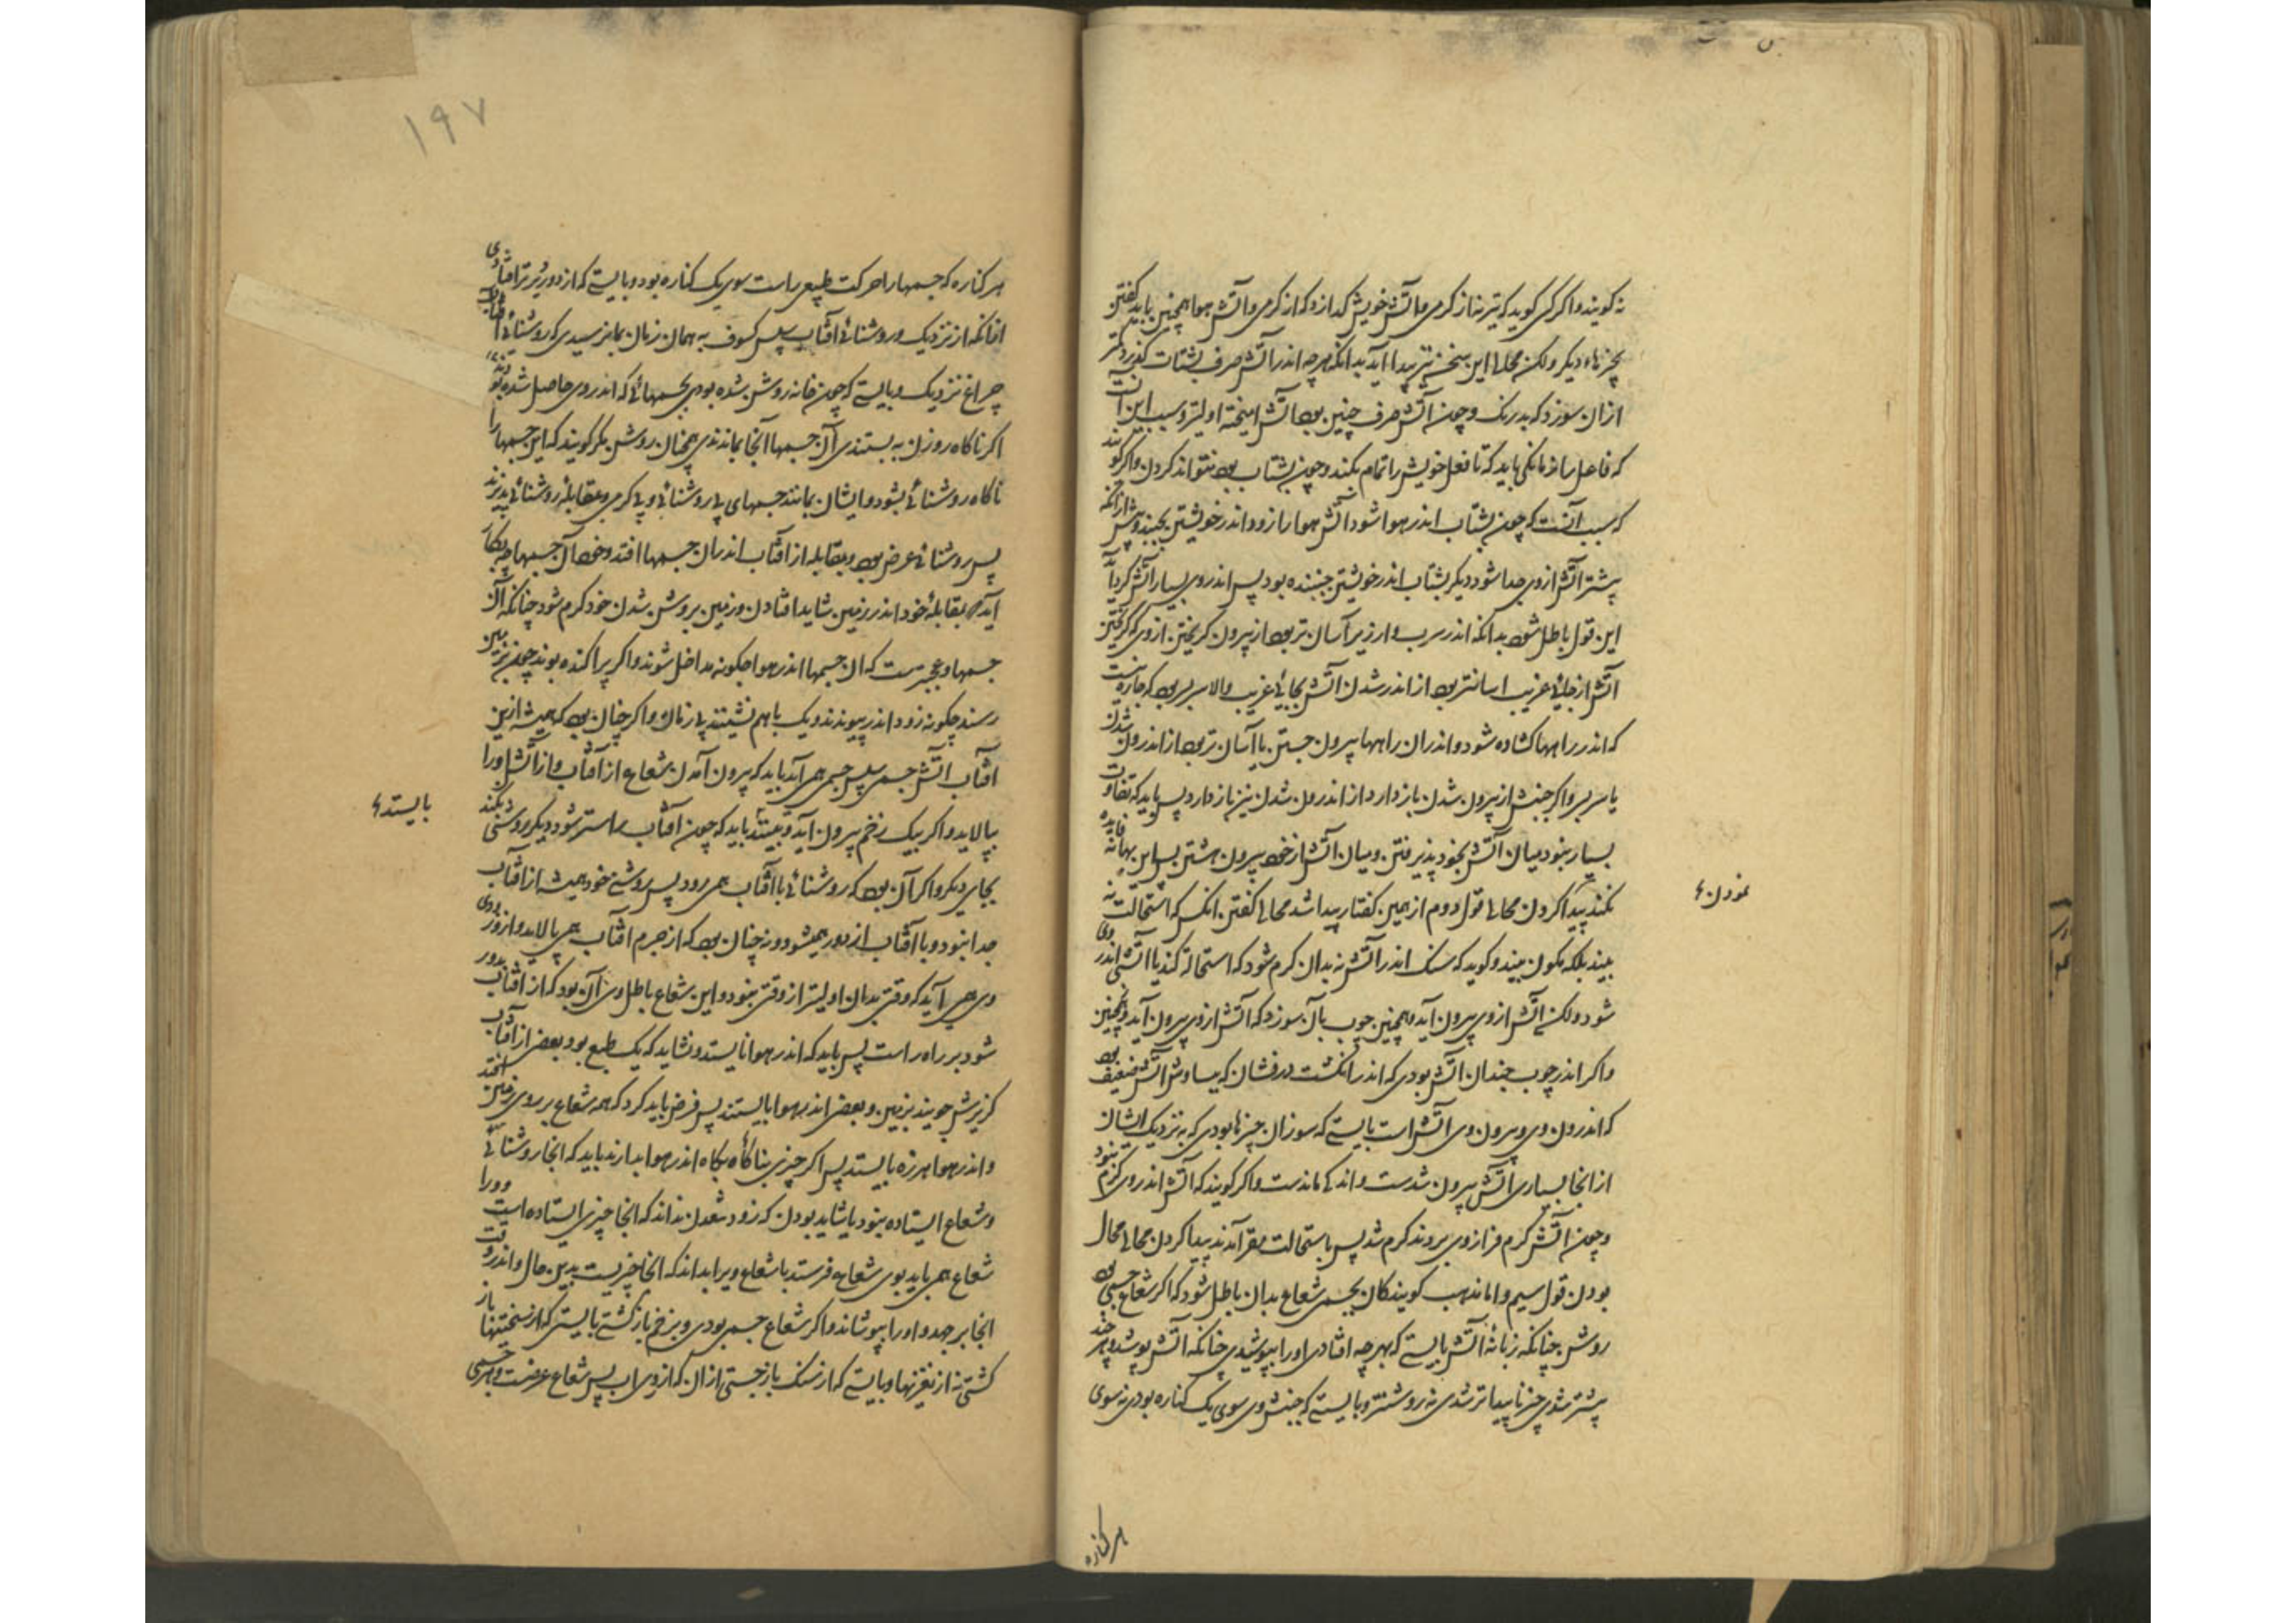 نه کویند و اکر کسی کوید که تیر نه از کرمی و آتش خویش کدازد که از کرمی و آتش هوا همچنین باید کفتن
بچیزهاء دیکر ولکن محالی این سخن نیز پیدا آید بدانکه هرچه اندر آتش صرف بشتاب کذرد کمتر
ازان سوزد که بدرنک و چون آتش صرف چنین بود آتش امیخته اولیتر و سبب این آنست
که فاعل را زمانکی باید که تا فعل خویش را تمام بکند و چون بشتاب بود نتواند کردن و اکر کویند
که سبب آنست که چون بشتاب اندر هوا شود آتش هوا را زود اندر خویشتن بجنبد و بیش ازانکه
پیشتر آتش ازوی جدا شود دیکر بشتاب اندر خویشتن جنبنده بود پس اندر وی بسیار آتش کرد آید
این قول باطل شود بدانکه اندر سرب و ارزیز آسان تر بود از بیرون کریختن ازوی که کرفتن
آتش از جائی غریب اسانتر بود از اندر شدن آتش بجائی غریب والا سربسر بود که چاره نیست
که اندر راهها کشاده شود و اندران راهها بیرون جستن یا آسان تر بود از اندرون شدن
یا سربسر و اکر جنبش از بیرون شدن باز دارد از اندرون شدن نیز باز دارد پس باید که تفاوت
بسیار نبود میان آتش بخود پذیرفتن و میان آتش از خود بیرون هشتن پس این بهانه فایده
نکند پیدا کردن محالی قول دوم از همین کفتار پیدا شد محالی کفتن انکس که استحالت نه
نمودن
بیند بلکه مکون بیند و کوید که سنک اندر آتش نه بدان کرم شود که استحالة کند یا آتشی اندر وی
شود ولکن آتش ازوی بیرون آید و همچنین چوب بآن سوزد که آتش ازوی بیرون آید و همچنین
و اکر اندر چوب چندان آتش بودی که اندر انکشت درفشان که بساوش آتش ضعیف بود
که اندرون وی و بیرون وی آتش است بایستی که سوزان چیزها بودی که به نزدیک ایشان
از انجا بسیاری آتش بیرون شدست و اندکی ماندست و اکر کویند که آتش اندر وی کرم نبود
و چون آتش کرم فراز وی بروند کرم شد پس باستحالت مقر آمدند پیدا کردن محالی محال
بودن قول سیم و اما مذهب کویندکان بجسمی شعاع بدان باطل شود که اکر شعاع جسمی بود
روشن چنانکه زبانهٔ آتش بایستی که بهرچه افتادی اورا بپوشیدی چنانکه آتش پوشد و هر چند
پیشتر شدی چیز ناپیداتر شدی نه روشنتر و بایستی که جنبش وی سوی یک کناره بودی نه سوی
هر کناره
۱۹۷
هر کناره که جسمها را حرکت طبیعی راست سوی یک کناره بود و بایستی که از دور دیرتر افتادی
ازانکه از نزدیک و روشنائی آفتاب پس کسوف به همان زمان بما نرسیدی که روشنائی
چراغ نزدیک و بایستی که چون خانه روشن شده بودی بجسمهائی که اندر وی حاصل شده بودندی
اکر ناکاه روزن به بستندی آن جسمها آنجا بماندندی همچنان روشن مکر کویند که این جسمها را
ناکاه روشنائی بشود و ایشان بمانند جسمهای بی روشنائی و بی کرمی و بمقابلهٔ روشنائی پذیرند
پس روشنائی عرض بود و بمقابله از آفتاب اندران جسمها افتد و خود آن جسمها چه بکار
آید که بمقابلهٔ خود اندر زمین شاید افتادن و زمین بروشن شدن خود کرم شود چنانکه آن
جسمها و عجبتر ست که ان جسمها اندر هوا چکونه مداخل شوند و اکر پراکنده بوند چون بزمین
رسند چکونه زود اندر پیوندند و یک باهم نشینند بی زمان و اکر چنان بود که همیشه ازین
آفتاب آتش جسمی پس جسمی همی آید باید که بیرون آمدن شعاع از آفتاب و از آتش اورا
بپالاید و اکر بیک زخم بیرون آید و بیستد باید که چون آفتاب راستر شود دیکر روشنی نکند
بایستد
بجای دیکر و اکر آن بود که روشنائی با آفتاب همی رود پس روشنی خود همیشه از آفتاب
جدا نبود و با آفتاب از دور همیشود و نه چنان بود که از جرم آفتاب همی پالاید و از دور بدوی
وی همی آید که وقتی بدان اولیتر از وقتی نبود و این شعاع باطل وی آن بود که از آفتاب بدور
شود بر راه راست پس باید که اندر هوا نایستد و نشاید که یک طبع بود بعضی از آفتاب
کریزش جویند بزمین و بعضی اندر هوا بایستند پس فرض باید کرد که همه شعاع بر روی زمین افتد
و اندر هوا هرزه بایستد پس اکر چیزی بناکاه بکاه اندر هوا بدارند باید که انجا روشنائی
و شعاع ایستاده نبود یا شاید بودن که زود شدن نداند که انجا چیزی ایستاده است و ورا
شعاع همی باید بوی شعاع فرستد یا شعاع ویرا بداند که انجا چیزیست بدین حال و اندر وقت
انجا برجهد و اورا بپوشاند و اکر شعاع جسم بودی و بزخم بازکشتی بایستی که از سختیها باز
کشتی نه از نغزیها و بایستی که از سنک باز جستی ازان که ازوی اب پس شعاع عرضست و هر جسمی